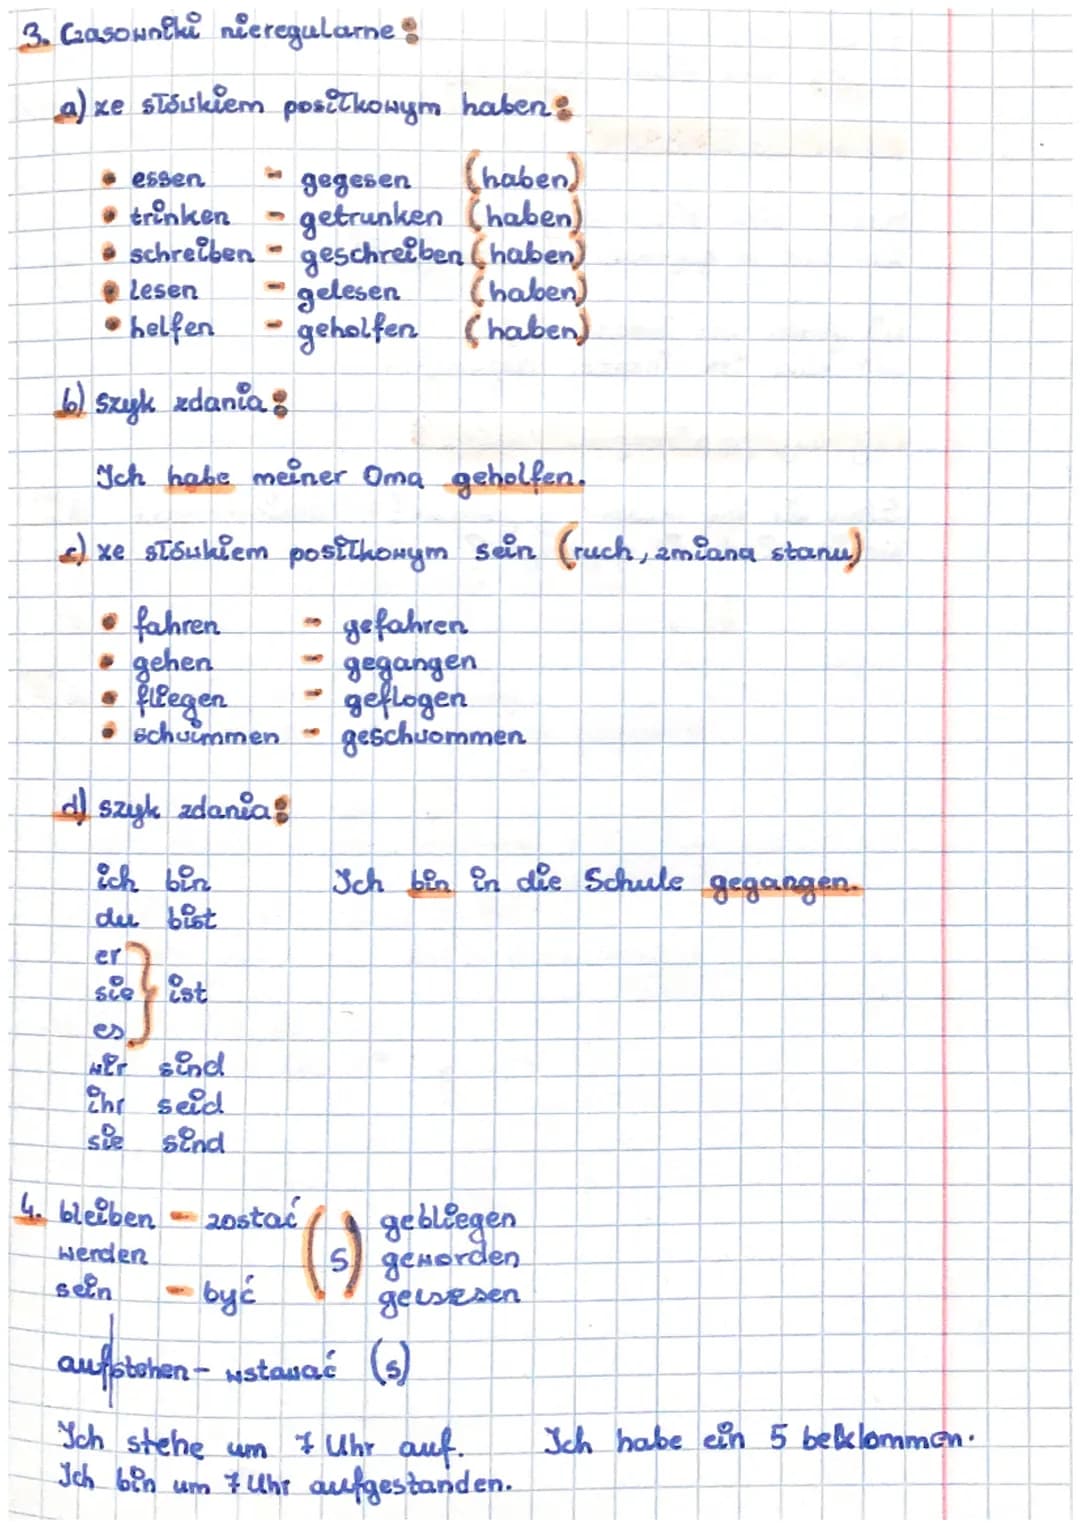 3. Czasowniki nieregularne:
a) ze słówkiem posiłkowym haben:
• essen - gegesen (haben)
• trinken - getrunken (haben)
• schreiben - geschreiben (haben)
• lesen - gelesen (haben)
• helfen - geholfen (haben)
b) szyk zdania:
Ich habe meiner Oma geholfen.
c) ze słówkiem posiłkowym sein (ruch, zmiana stanu)
• fahren - gefahren
• gehen - gegangen
• fliegen - geflogen
• schwimmen - geschwommen
d) szyk zdania:
ich bin Ich bin in die Schule gegangen.
du bist
er
sie } ist
es
wir sind
ihr seid
sie sind
4. bleiben - zostać ( gebliegen
werden s geworden
sein - być ) gewesen
aufstehen - wstawać (s)
Ich stehe um 7 Uhr auf. Ich habe ein 5 beklommen.
Ich bin um 7 Uhr aufgestanden.